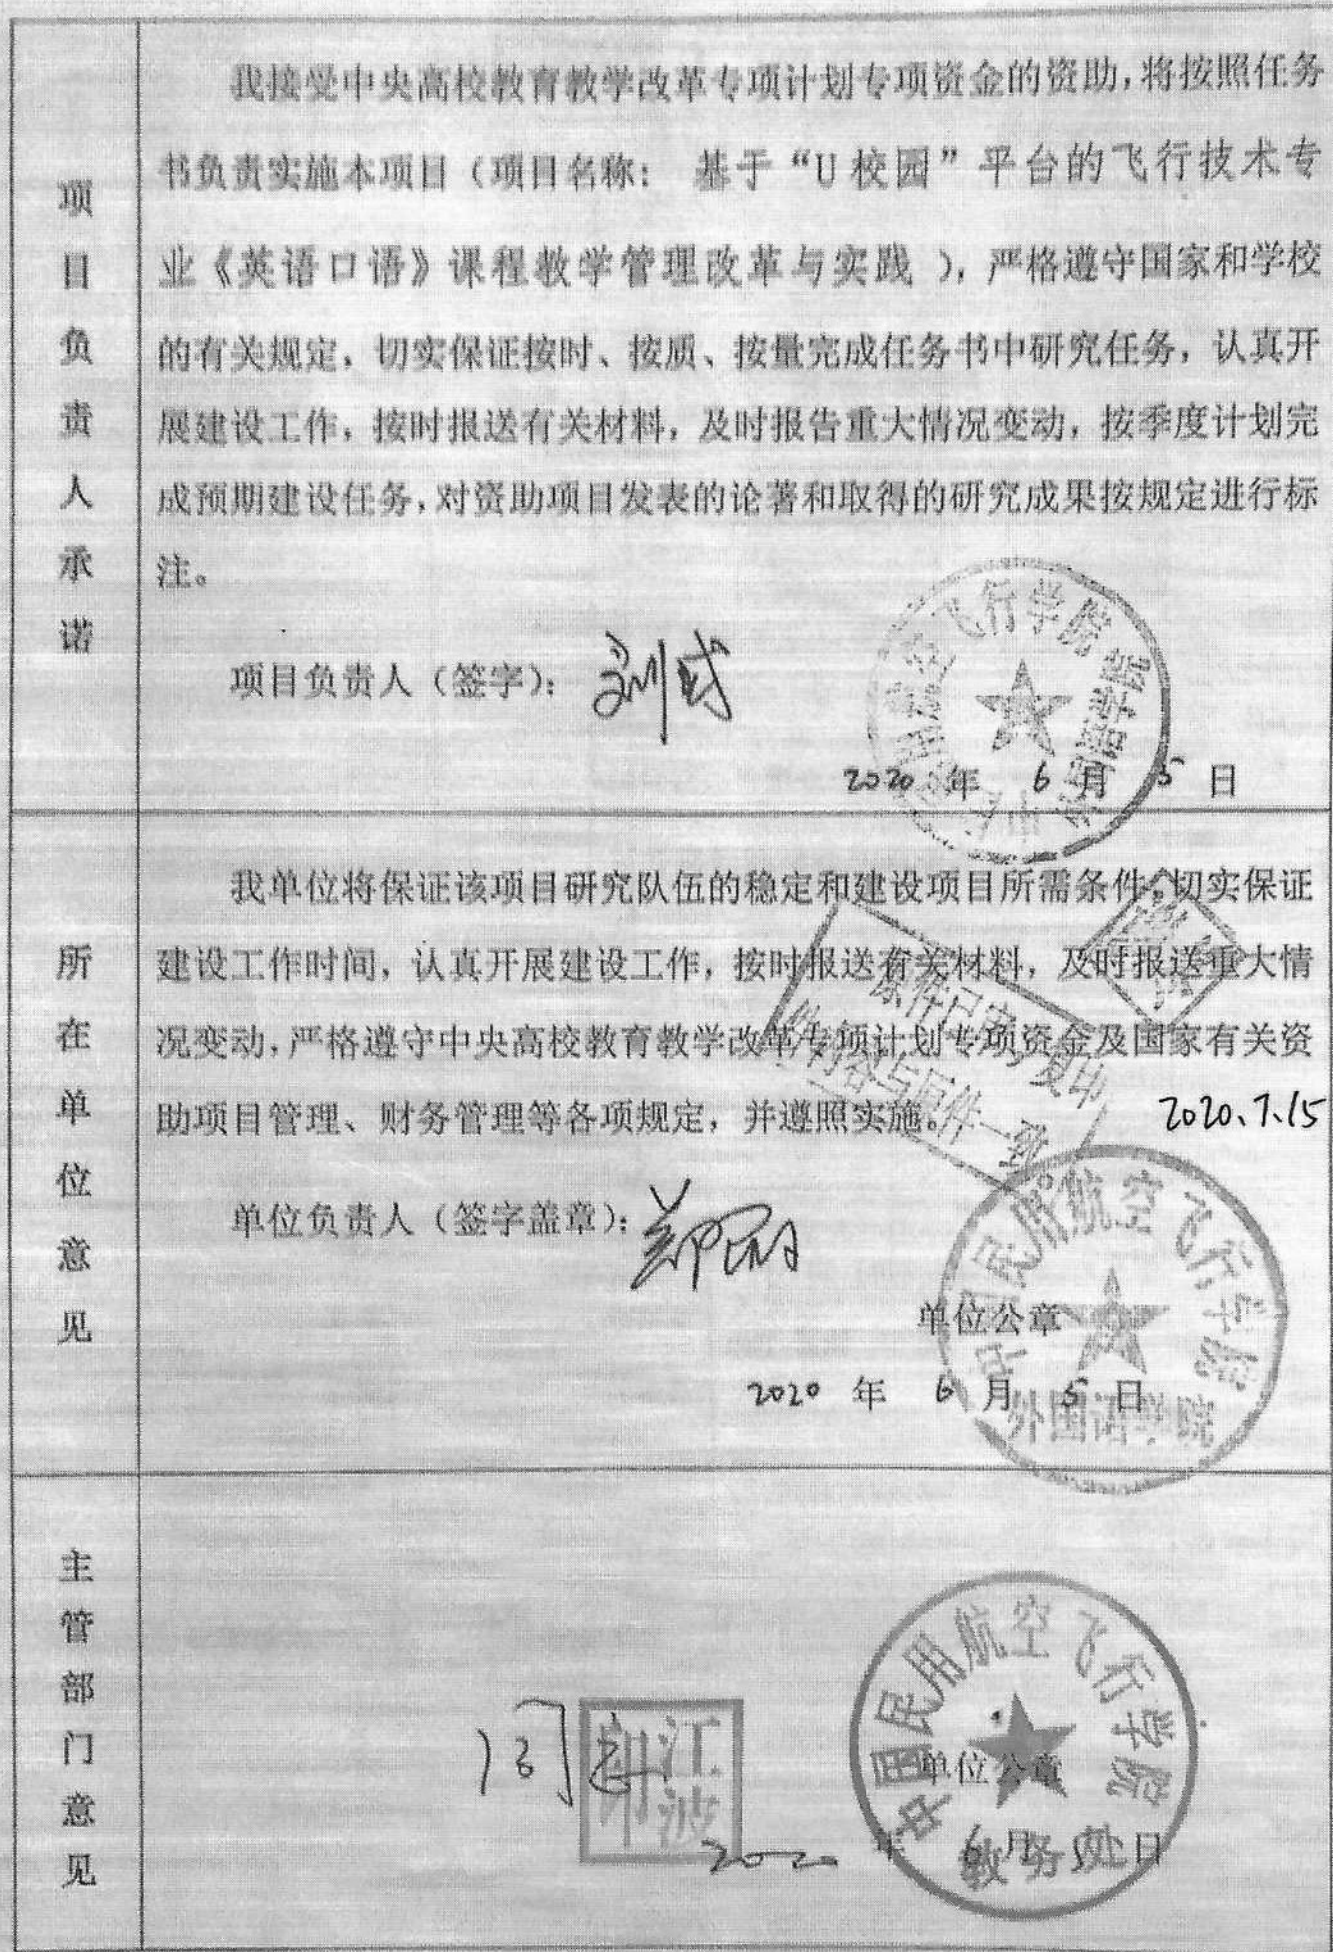 项目负责人承诺
我接受中央高校教育教学改革专项计划专项资金的资助，将按照任务
书负责实施本项目（项目名称： 基于“U校园”平台的飞行技术专
业《英语口语》课程教学管理改革与实践 ），严格遵守国家和学校
的有关规定，切实保证按时、按质、按量完成任务书中研究任务，认真开
展建设工作，按时报送有关材料，及时报告重大情况变动，按季度计划完
成预期建设任务，对资助项目发表的论著和取得的研究成果按规定进行标
注。
项目负责人（签字）：
飞行学院
外国语学院
2020 年 6 月 5 日
所在单位意见
我单位将保证该项目研究队伍的稳定和建设项目所需条件，切实保证
建设工作时间，认真开展建设工作，按时报送有关材料，及时报送重大情
况变动，严格遵守中央高校教育教学改革专项计划专项资金及国家有关资
助项目管理、财务管理等各项规定，并遵照实施。
原件已审，复印
件内容与原件一致。
2020.7.15
单位负责人（签字盖章）：
中国民用航空飞行学院
外国语学院
单位公章
2020 年 6 月 5 日
主管部门意见
同意
江波印
中国民用航空飞行学院
教务处
单位公章
2020 年 6 月 5 日